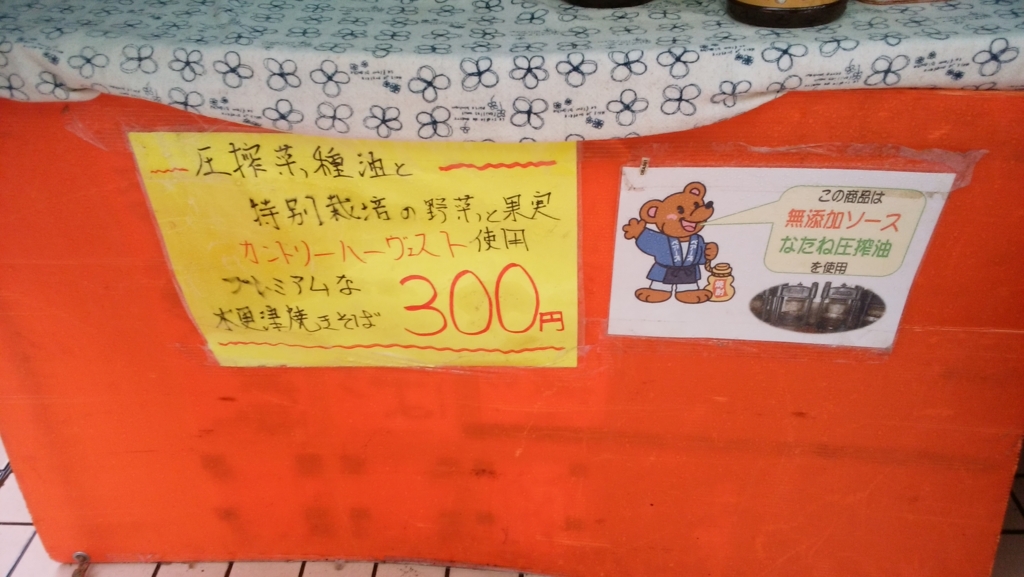 圧搾菜種油と
特別栽培の野菜と果実
カントリーハーヴェスト使用
プレミアムな
木更津焼きそば 300円
この商品は
無添加ソース
なたね圧搾油
を使用